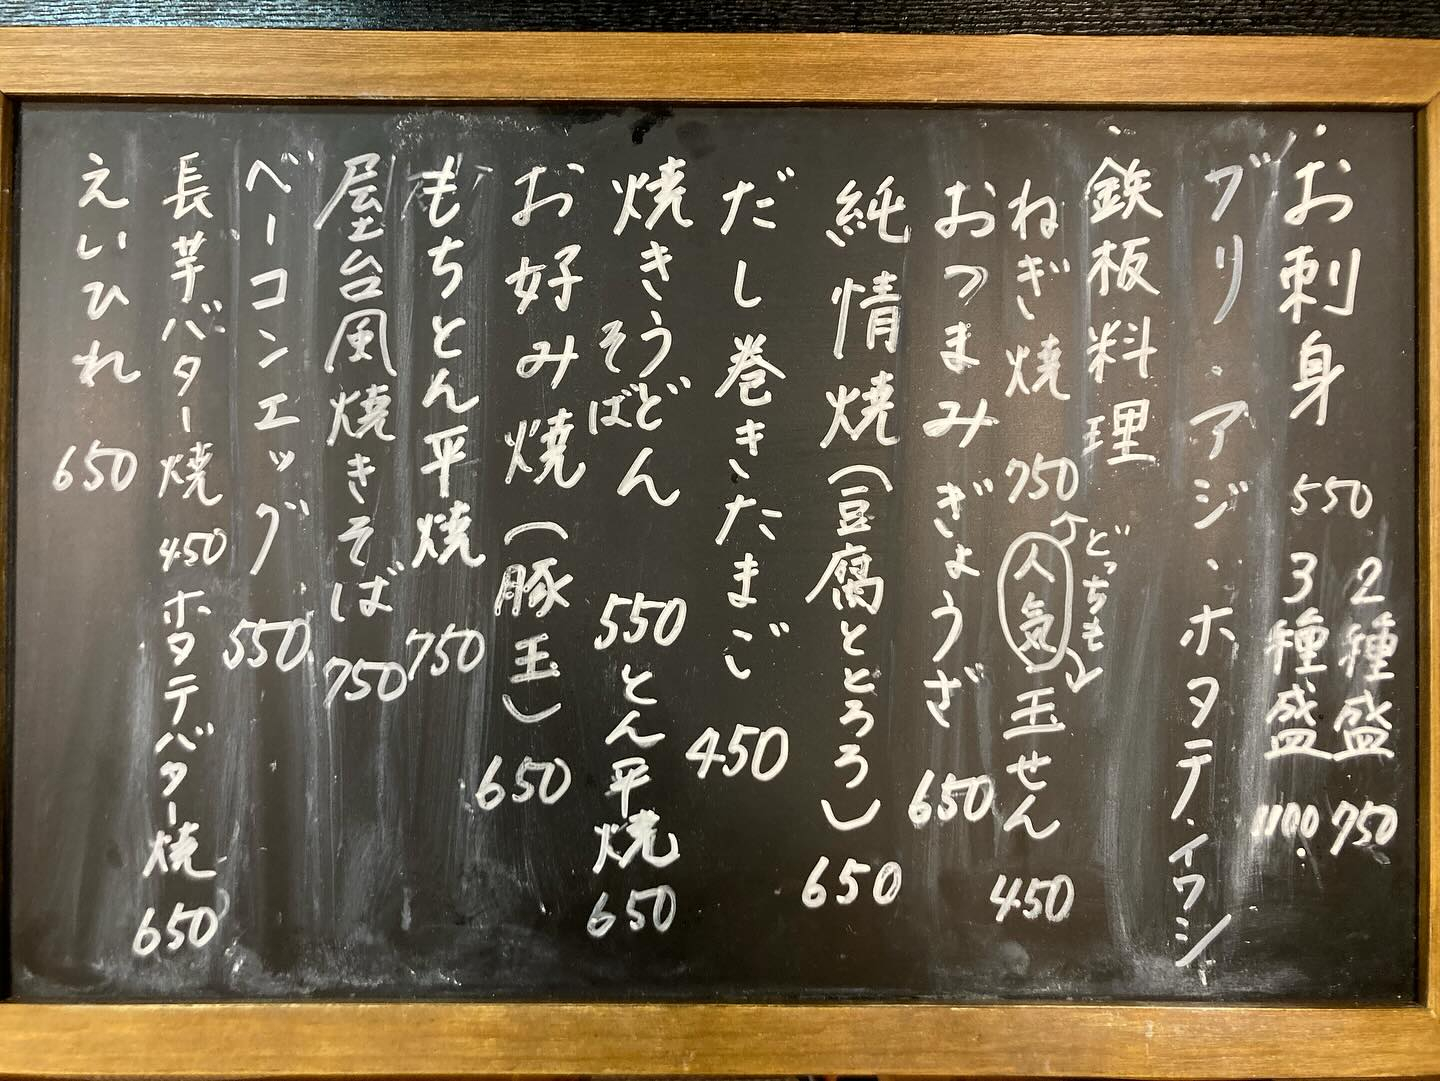 ・お刺身 550 2種盛 750
3種盛 1100
ブリ・アジ・ホタテ・イワシ
・鉄板料理
ねぎ焼 750 人気 玉せん 450
どっちも
おつまみぎょうざ 650
純情焼(豆腐ととろろ) 650
だし巻きたまご 450
焼きうどん 550 とん平焼 650
そば
お好み焼(豚玉) 650
もちとん平焼 750
屋台風焼きそば 750
ベーコンエッグ 550
長芋バター焼 450 ホタテバター焼 650
えいひれ 650